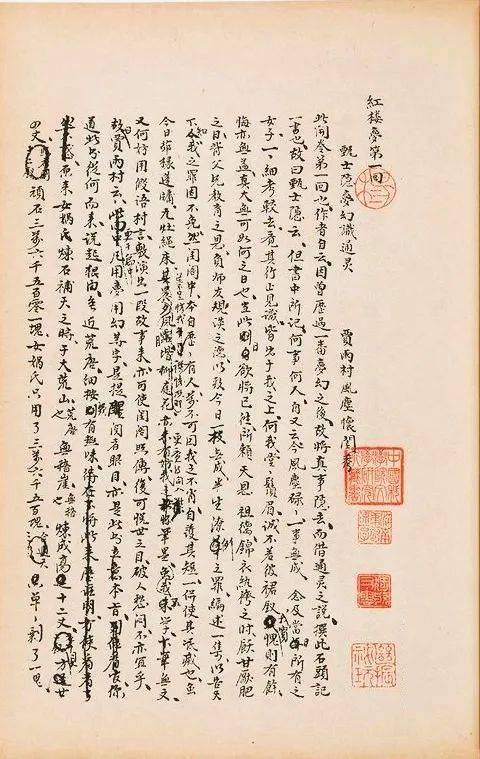 紅樓夢第一回
甄士隐夢幻識通灵 賈雨村風塵懷閨秀
此開卷第一回也作者自云因曾歷過一番夢幻之後故將真事隱去而借通灵之說撰此石頭記
一书也故曰甄士隐云云但書中所記何事何人自又云今風塵碌碌一事無成忽念及當日所有之
女子一一細考較去覺其行止見識皆出于我之上何我堂堂鬚眉誠不若彼裙釵我實愧則有餘
悔亦無益真大無可如何之日也當此則自欲將已往所賴天恩祖德錦衣紈袴之时飫甘饜肥
之日背父兄教育之恩負師友規談之德以致今日一技無成半生潦倒之罪編述一集以告天
下人知我之罪固不免然閨阁中本自歷歷有人萬不可因我之不肖自護其短一併使其泯滅也虽
今日茅椽蓬牖瓦灶繩床其晨夕風露堦柳庭花筆墨雖我未學下筆無文
又何妨用假语村言敷演出一段故事来亦可使閨阁照傳復可悦世之目破人愁闷不亦宜乎
故曰賈雨村云云此回中凡用夢用幻等字是提醒閱者眼目亦是此书立意本旨列位看官你
道此书從何而来说起根由虽近荒唐細按則有趣味待在下將此来歷註明方使閱者了
然不惑原来女媧氏煉石補天之時于大荒山無稽崖煉成高經十二丈方經廿
四丈頑石三萬六千五百零一塊女媧氏只用了三萬六千五百塊只单单剩了一塊